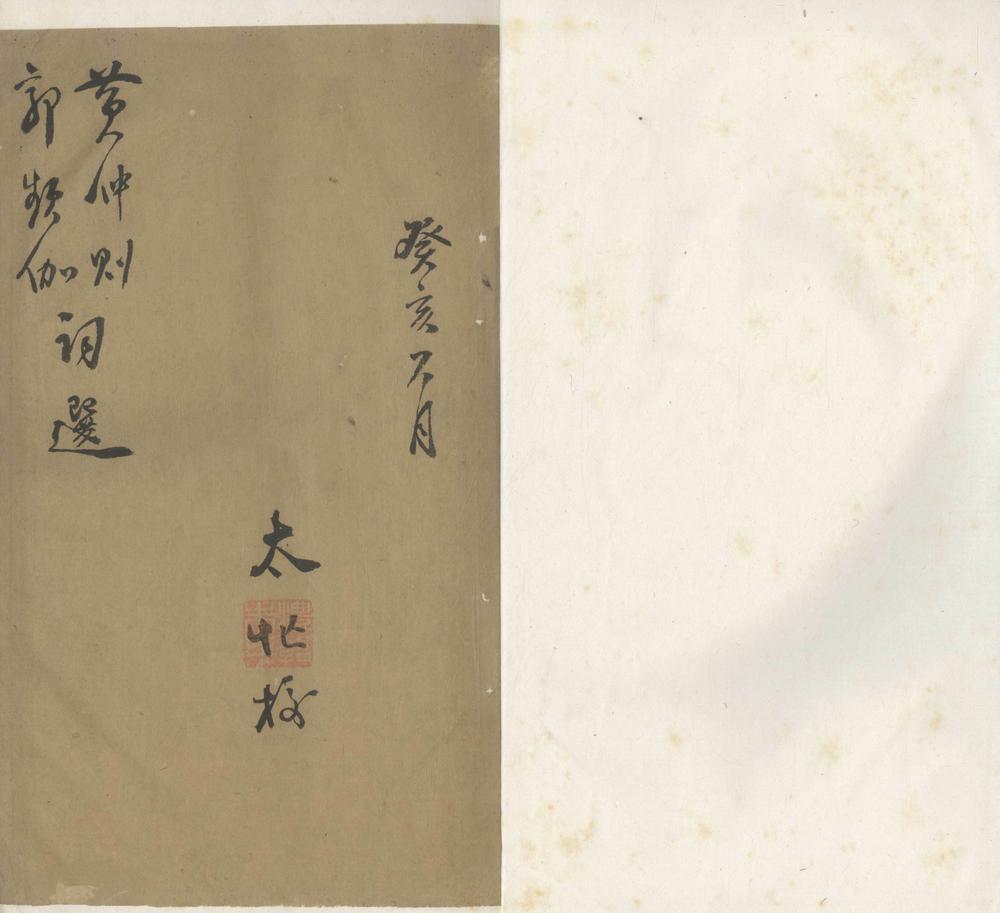 癸亥六月
太忙校
黃仲則
郭頻伽
詞選